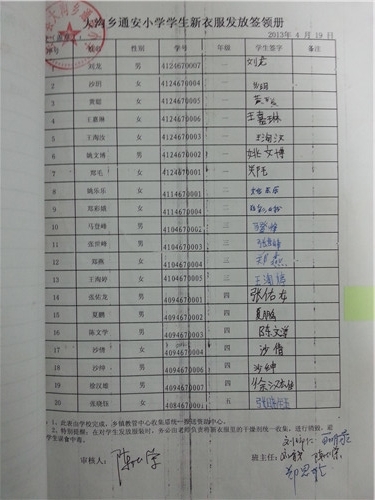 大沟乡通安小学学生新衣服发放签领册
2013年 4月 19日
序号 姓名 性别 学号 年级 学生签名 备注
1 刘龙 男 4124670007 一 刘龙
2 沙玥 女 4124670004 一
3 黄媛 女 4124670005 一
4 王嘉琳 女 4124670006 一 王嘉琳
5 王海汝 女 4124670002 一 王海汝
6 姚文博 男 4124670002 一 姚文博
7 郑毛 女 4124670001 一 郑毛
8 姚乐乐 女 4114670001 二 姚乐乐
9 郑彩娥 女 4114670004 二 郑彩娥
10 马登峰 男 4104670001 三 马登峰
11 张世峰 男 4104670003 三 张世峰
12 郑燕 女 4104670005 三 郑燕
13 王海婷 女 4104670007 三 王海婷
14 张佑龙 男 4094670001 四 张佑龙
15 夏鹏 男 4094670002 四 夏鹏
16 陈文学 男 4094670003 四 陈文学
17 沙倩 女 4094670005 四 沙倩
18 沙帅 男 4094670006 四 沙帅
19 徐汉雄 男 4094670008 四
20 张晓钰 女 4084670001 五
1、此表由学校完成,乡镇教管中心收集后统一报送资助中心。
审核人: 陈文学
班主任: